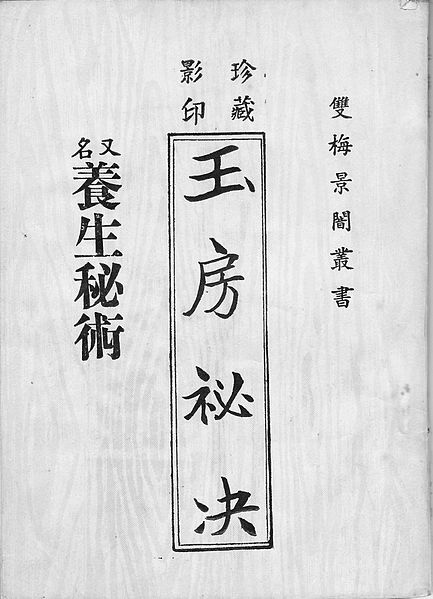 雙梅景闇叢書
珍藏
影印
玉房祕决
又名
養生秘術